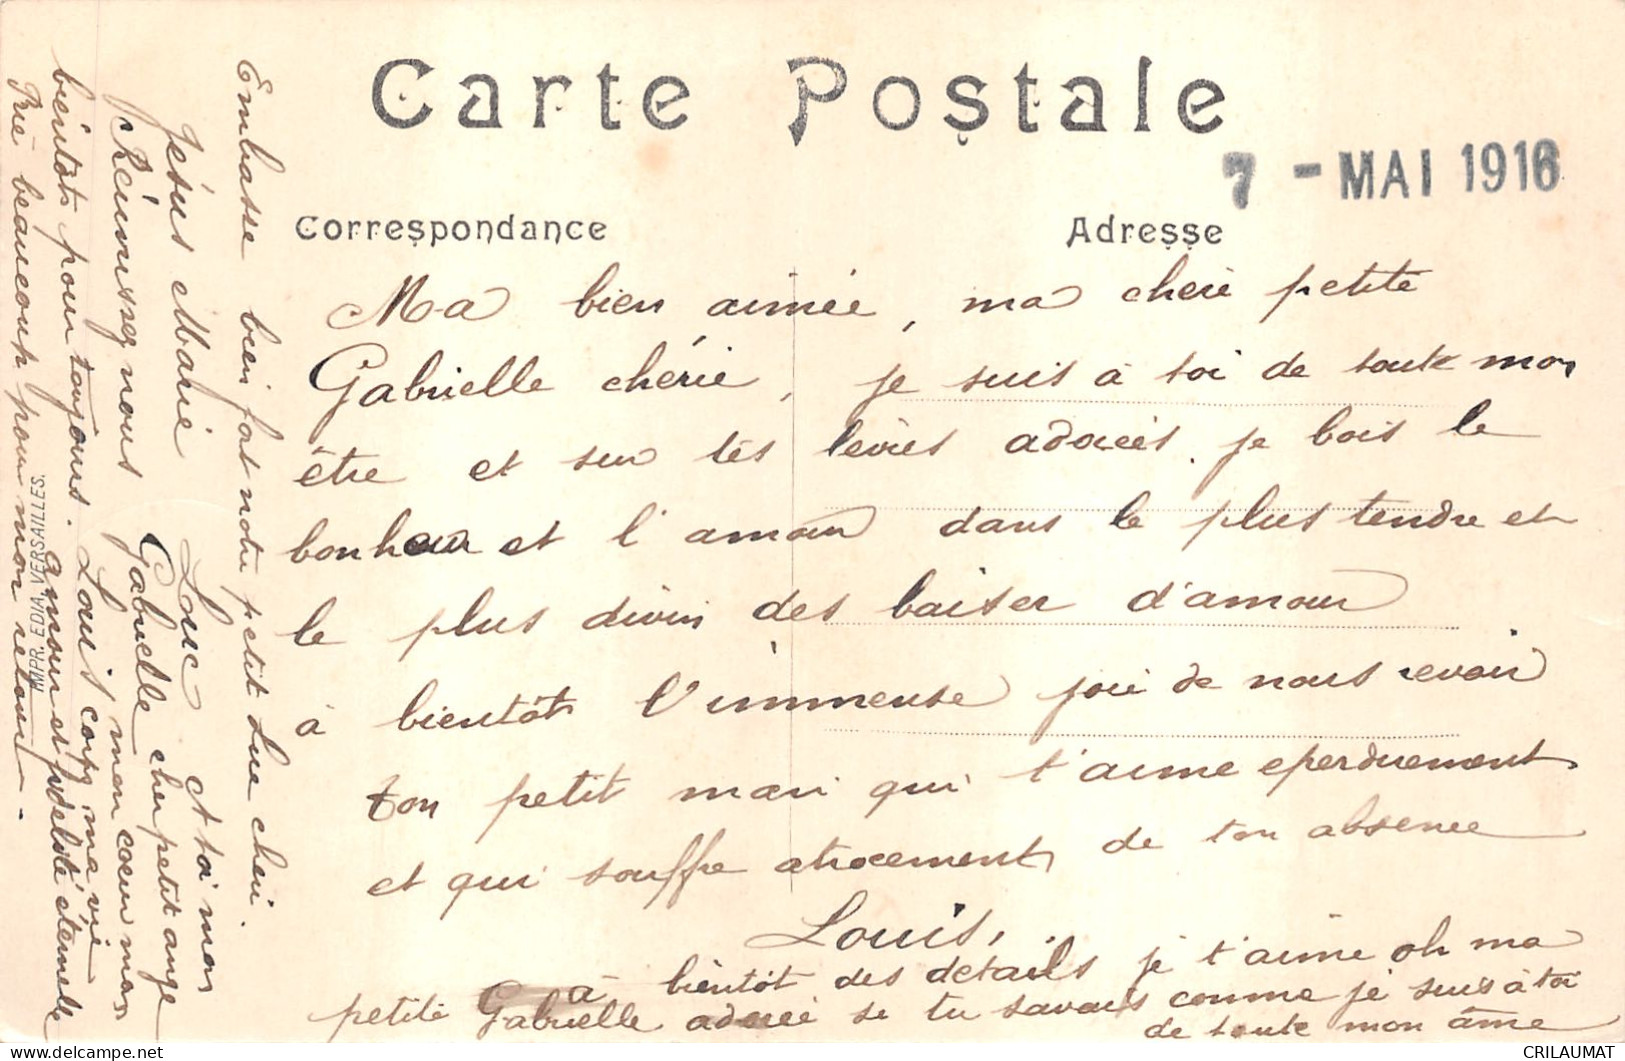 Carte Postale
7 - MAI 1916
Correspondance
Adresse
Ma bien aimée, ma cheré petite
Gabrielle chérie, je suis à toi de toute mon
être et sur tes levres adorées je bois le
bonheur et l'amour dans le plus tendre et
le plus divin des baiser d'amour
à bientôt l'immense joie de nous revoir
ton petit mari qui t'aime eperduement
et qui souffre atrocement de ton absence
Louis,
à bientôt des details je t'aime oh ma
petite Gabrielle adorée si tu savais comme je suis à toi
de toute mon âme
Embrasse bien fort notre petit Luc cheri.
Jésus Marie Luc A toi mon
Réunissez nous Gabrielle cher petit ange
bientôt pour toujours. Louis corps ma vie mon coeur mon
amour et fidelité éternelle
Prie beaucoup pour mon retour.
IMPR. EDIA VERSAILLES.
CRILAUMAT